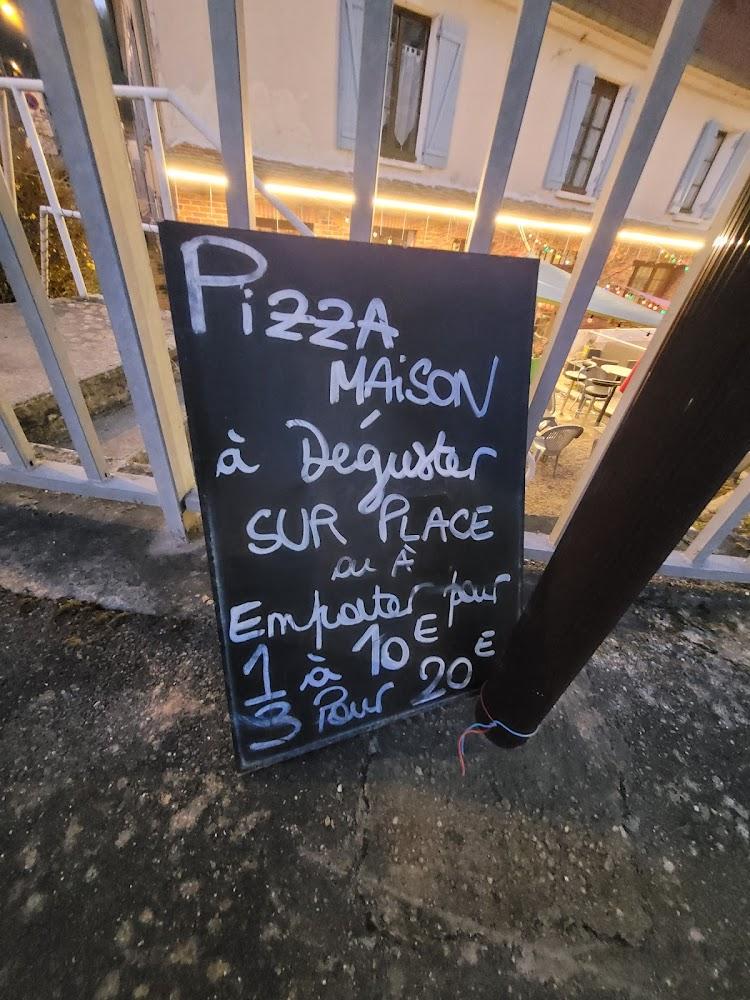 PiZZA
MAiSON
à Déguster
SUR PLACE
ou À
Emporter pour
1 à 10 E
3 Pour 20 E